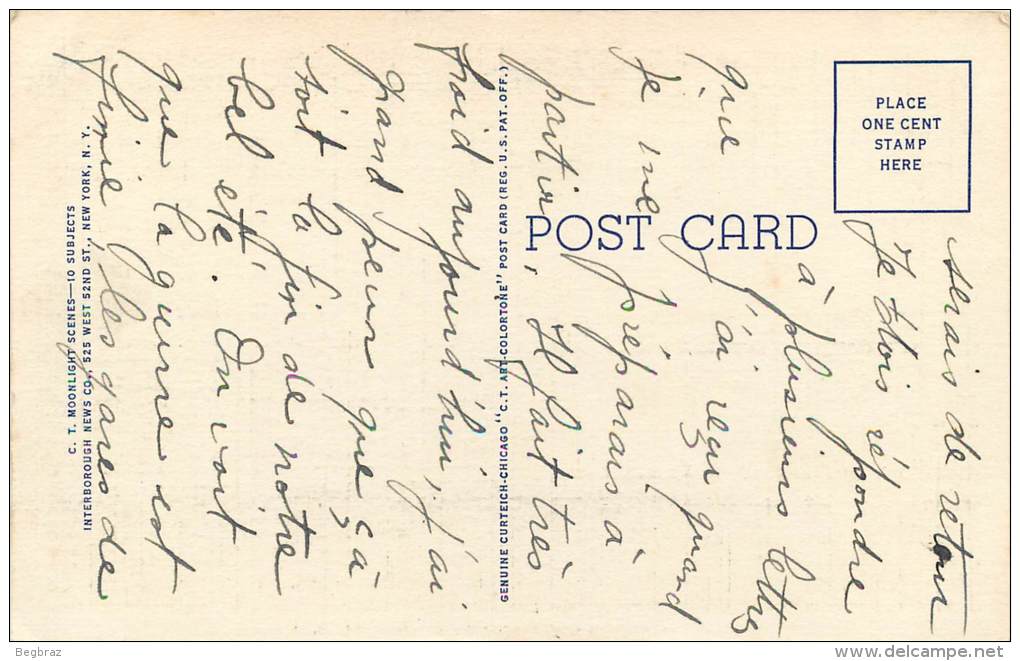 serais de retour
Je dois répondre
à plusieurs lettres
que j'ai reçu quand
je me préparais à
partir. Il fait très
froid aujourd'hui, j'ai
grand peur que ça
soit la fin de notre
bel été. On voit
que la guerre est
finie, les gares de
PLACE
ONE CENT
STAMP
HERE
POST CARD
GENUINE CURTEICH-CHICAGO "C.T. ART-COLORTONE" POST CARD (REG. U.S. PAT. OFF.)
C. T. MOONLIGHT SCENES—10 SUBJECTS
INTERBOROUGH NEWS CO., 525 WEST 52ND ST., NEW YORK, N. Y.
Begbraz
www.delcampe.net